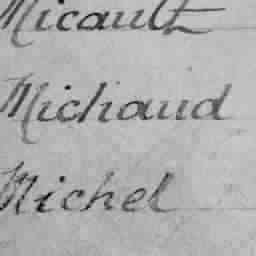 Micault
Michaud
Michel